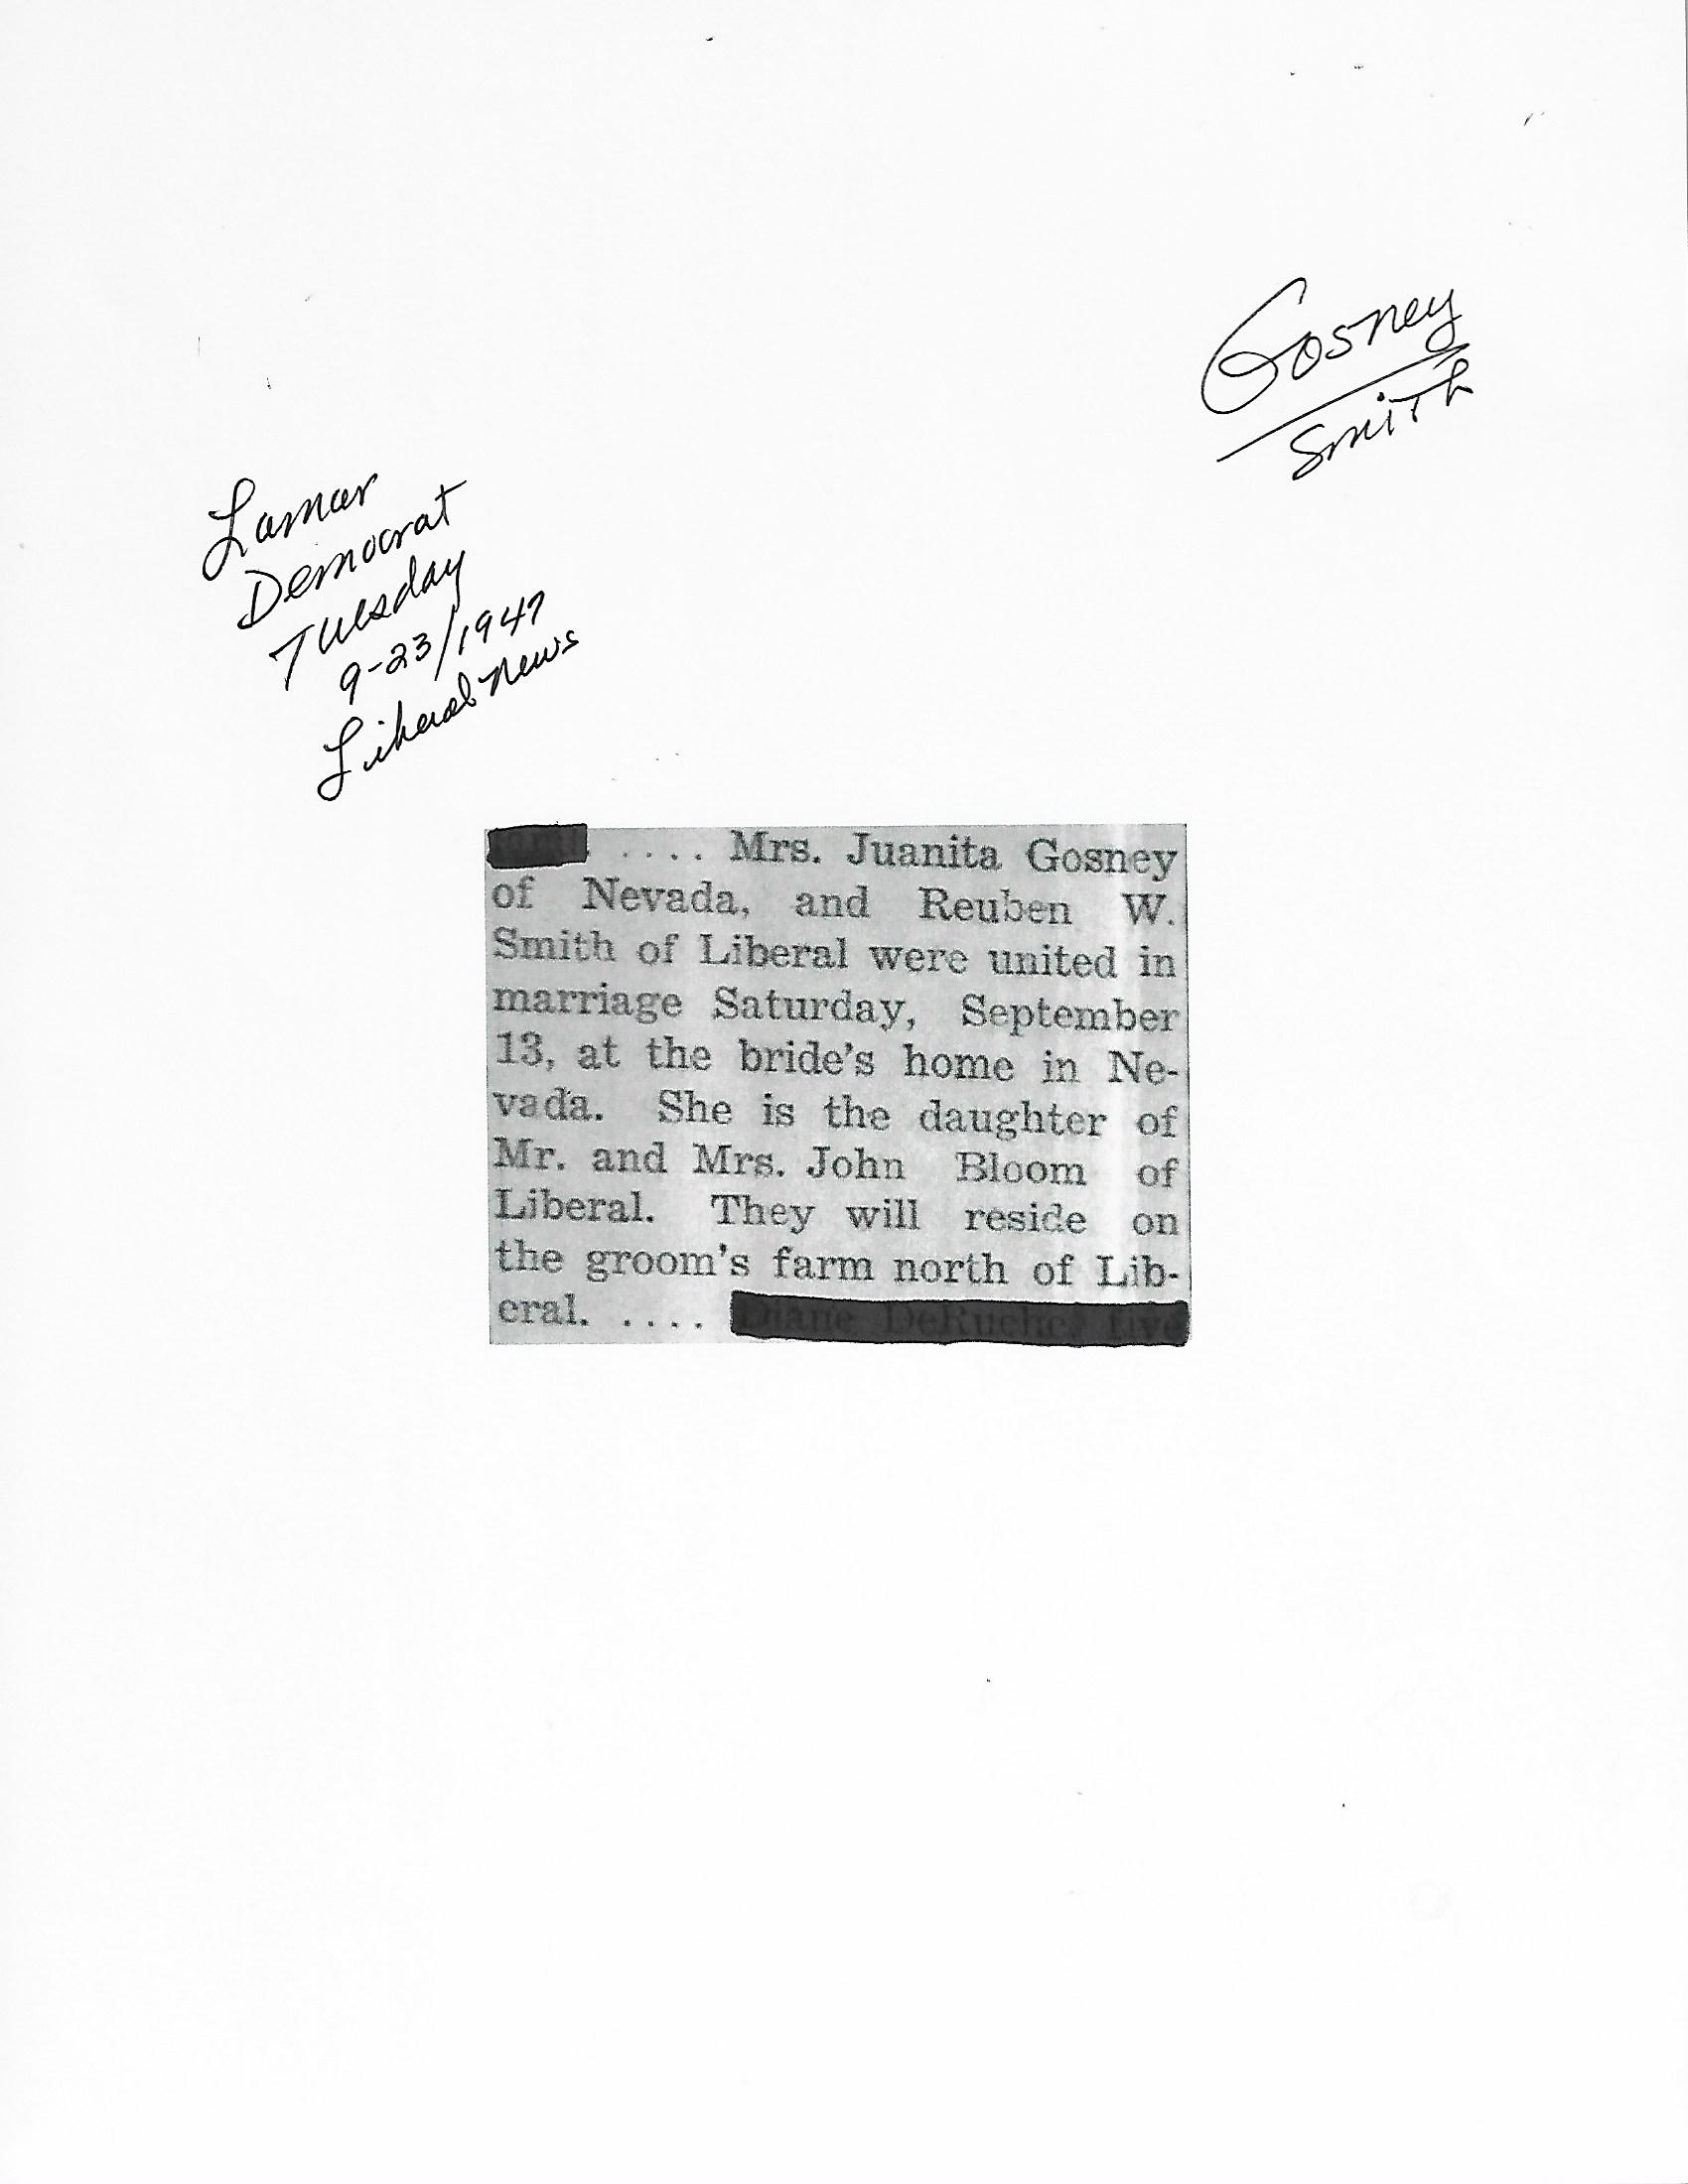 Gosney
Smith
Lamar
Democrat
Tuesday
9-23/1947
Liberal News
.... Mrs. Juanita Gosney
of Nevada, and Reuben W.
Smith of Liberal were united in
marriage Saturday, September
13, at the bride's home in Ne-
vada. She is the daughter of
Mr. and Mrs. John Bloom of
Liberal. They will reside on
the groom's farm north of Lib-
eral. ....